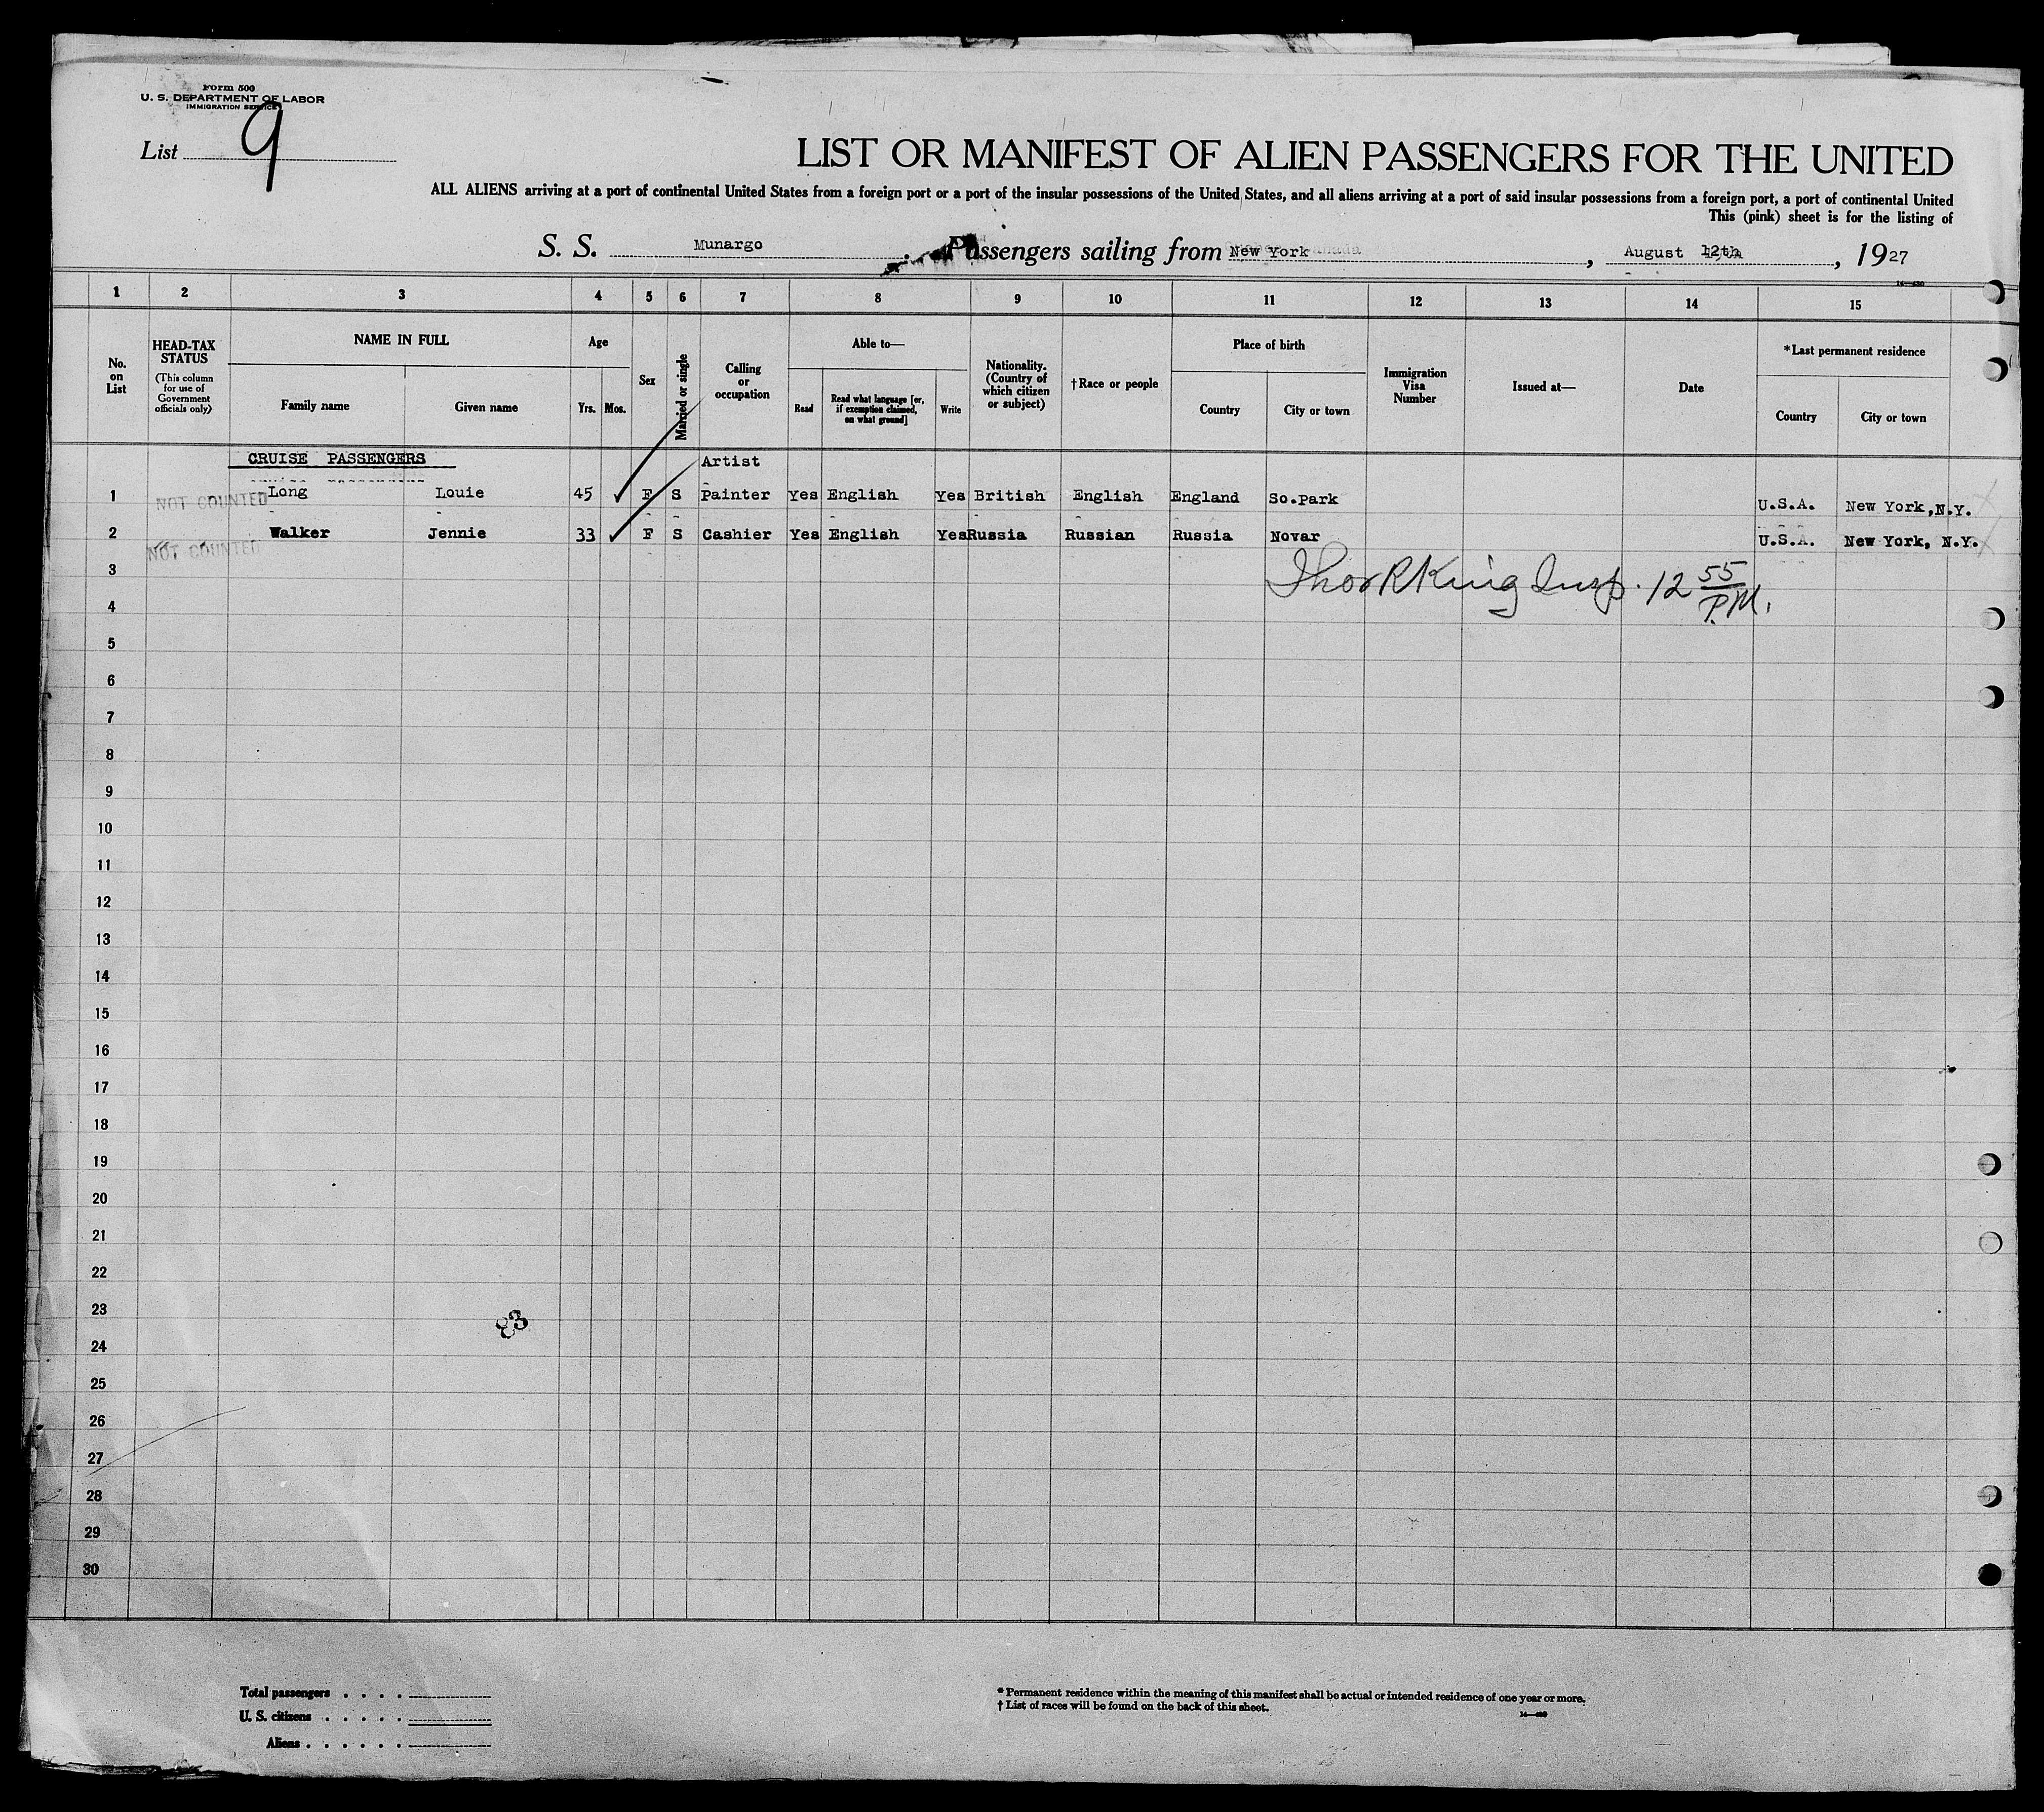 Form 500
U. S. DEPARTMENT OF LABOR
IMMIGRATION SERVICE
List 9
LIST OR MANIFEST OF ALIEN PASSENGERS FOR THE UNITED
ALL ALIENS arriving at a port of continental United States from a foreign port or a port of the insular possessions of the United States, and all aliens arriving at a port of said insular possessions from a foreign port, a port of continental United
This (pink) sheet is for the listing of
S. S. Munargo Passengers sailing from New York, August 12th, 1927
14—430
1 2 3 4 5 6 7 8 9 10 11 12 13 14 15
No. on List
HEAD-TAX STATUS (This column for use of Government officials only)
NAME IN FULL Family name Given name
Age Yrs. Mos.
Sex
Married or single
Calling or occupation
Able to— Read Read what language [or, if exemption claimed, on what ground] Write
Nationality. (Country of which citizen or subject)
†Race or people
Place of birth Country City or town
Immigration Visa Number
Issued at—
Date
*Last permanent residence Country City or town
CRUISE PASSENGERS
Artist
1 NOT COUNTED Long Louie 45 F S Painter Yes English Yes British English England So.Park U.S.A. New York,N.Y.
2 NOT COUNTED Walker Jennie 33 F S Cashier Yes English Yes Russia Russian Russia Novar U.S.A. New York, N.Y.
3
Thor R King Insp. 12 55 P.M.
4
5
6
7
8
9
10
11
12
13
14
15
16
17
18
19
20
21
22
23
83
24
25
26
27
28
29
30
Total passengers . . . .
U. S. citizens . . . . .
Aliens . . . . . .
* Permanent residence within the meaning of this manifest shall be actual or intended residence of one year or more.
† List of races will be found on the back of this sheet.
14—430